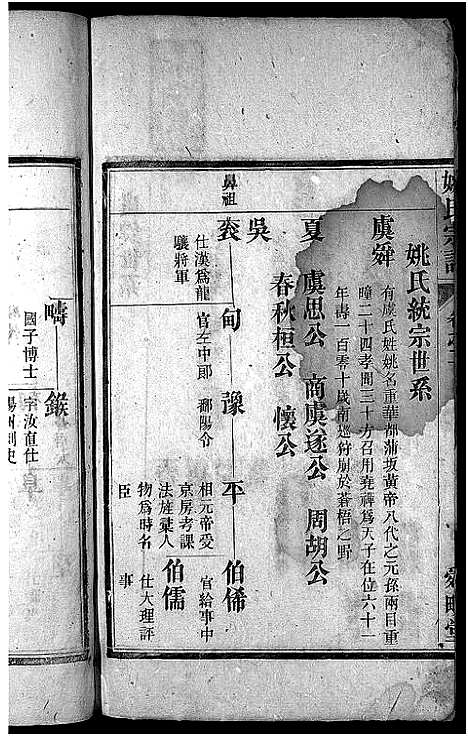 姚氏宗譜
姚氏統宗世系
虞舜
有虞氏姓姚名重華都蒲坂黃帝八代之元孫兩目重
瞳二十四孝聞三十方召用堯禪為天子在位六十一
年壽一百零十歲南巡狩崩於蒼梧之野
夏 虞思公 商虞遂公 周胡公
春秋桓公 懷公
吳
鼻祖
袞 甸 豫 平 伯俙
仕漢為龍
驤將軍
官左中郎
鄱陽令
相元帝受
京房考課
法旌棄人
物為時名
臣
官給事中
伯儒
仕大理評
事
疇 鍭
國子博士
字汝直仕